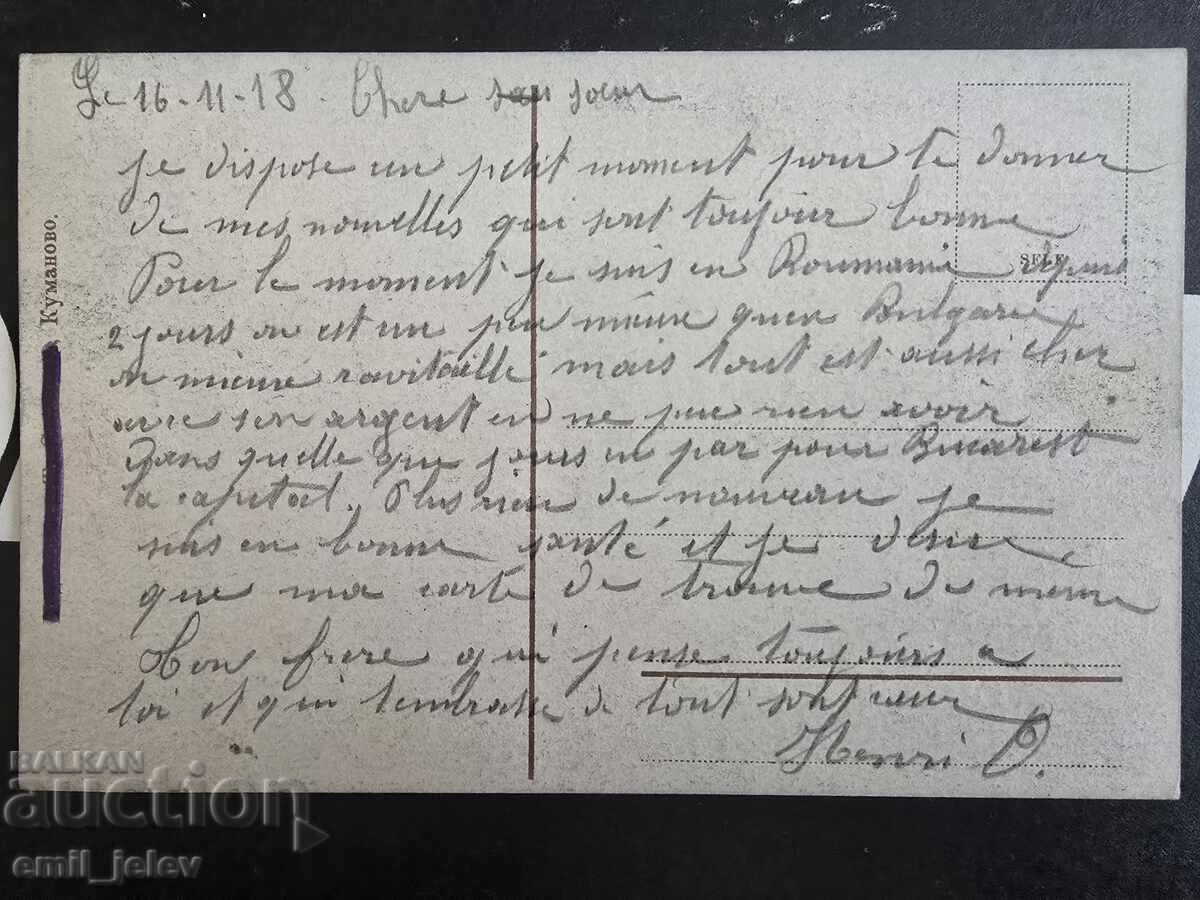 Le 16-11-18. Chere sœur
je dispose un petit moment pour te donner
de mes nouvelles qui sont toujour bonne
Pour le moment je suis en Roumanie depuis
2 jours on est un peu mieux quen Bulgarie
on mieux ravitaillé mais tout est aussi cher
avec son argent en ne peu rien avoir
Dans quelle que jours en par pour Bucarest
la capital. Plus rien de nouveau je
suis en bonne santé et je desire
que ma carte de trouve de meme
Ton frere qui pense toujours a
toi et qui tembrasse de tout sont cœur
Henri O.
Куманово.
SELF
BALKAN
auction
emil_jelev